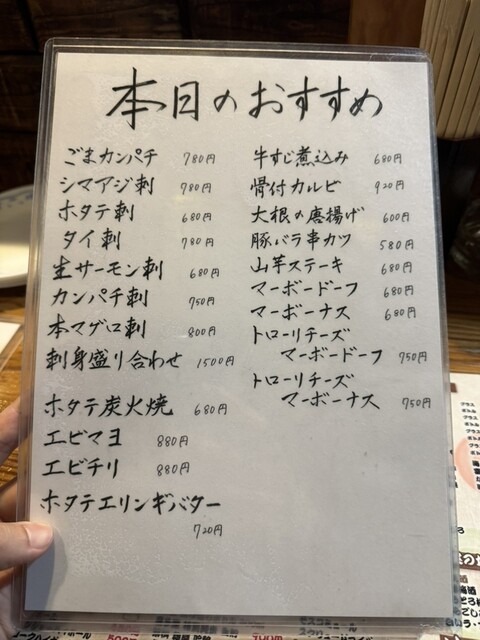 本日のおすすめ
ごまカンパチ 780円
シマアジ刺 780円
ホタテ刺 680円
タイ刺 780円
生サーモン刺 680円
カンパチ刺 750円
本マグロ刺 800円
刺身盛り合わせ 1500円
ホタテ炭火焼 680円
エビマヨ 880円
エビチリ 880円
ホタテエリンギバター
720円
牛すじ煮込み 680円
骨付カルビ 920円
大根の唐揚げ 600円
豚バラ串カツ 580円
山芋ステーキ 680円
マーボードーフ 680円
マーボーナス 680円
トローリチーズ
マーボードーフ 750円
トローリチーズ
マーボーナス 750円